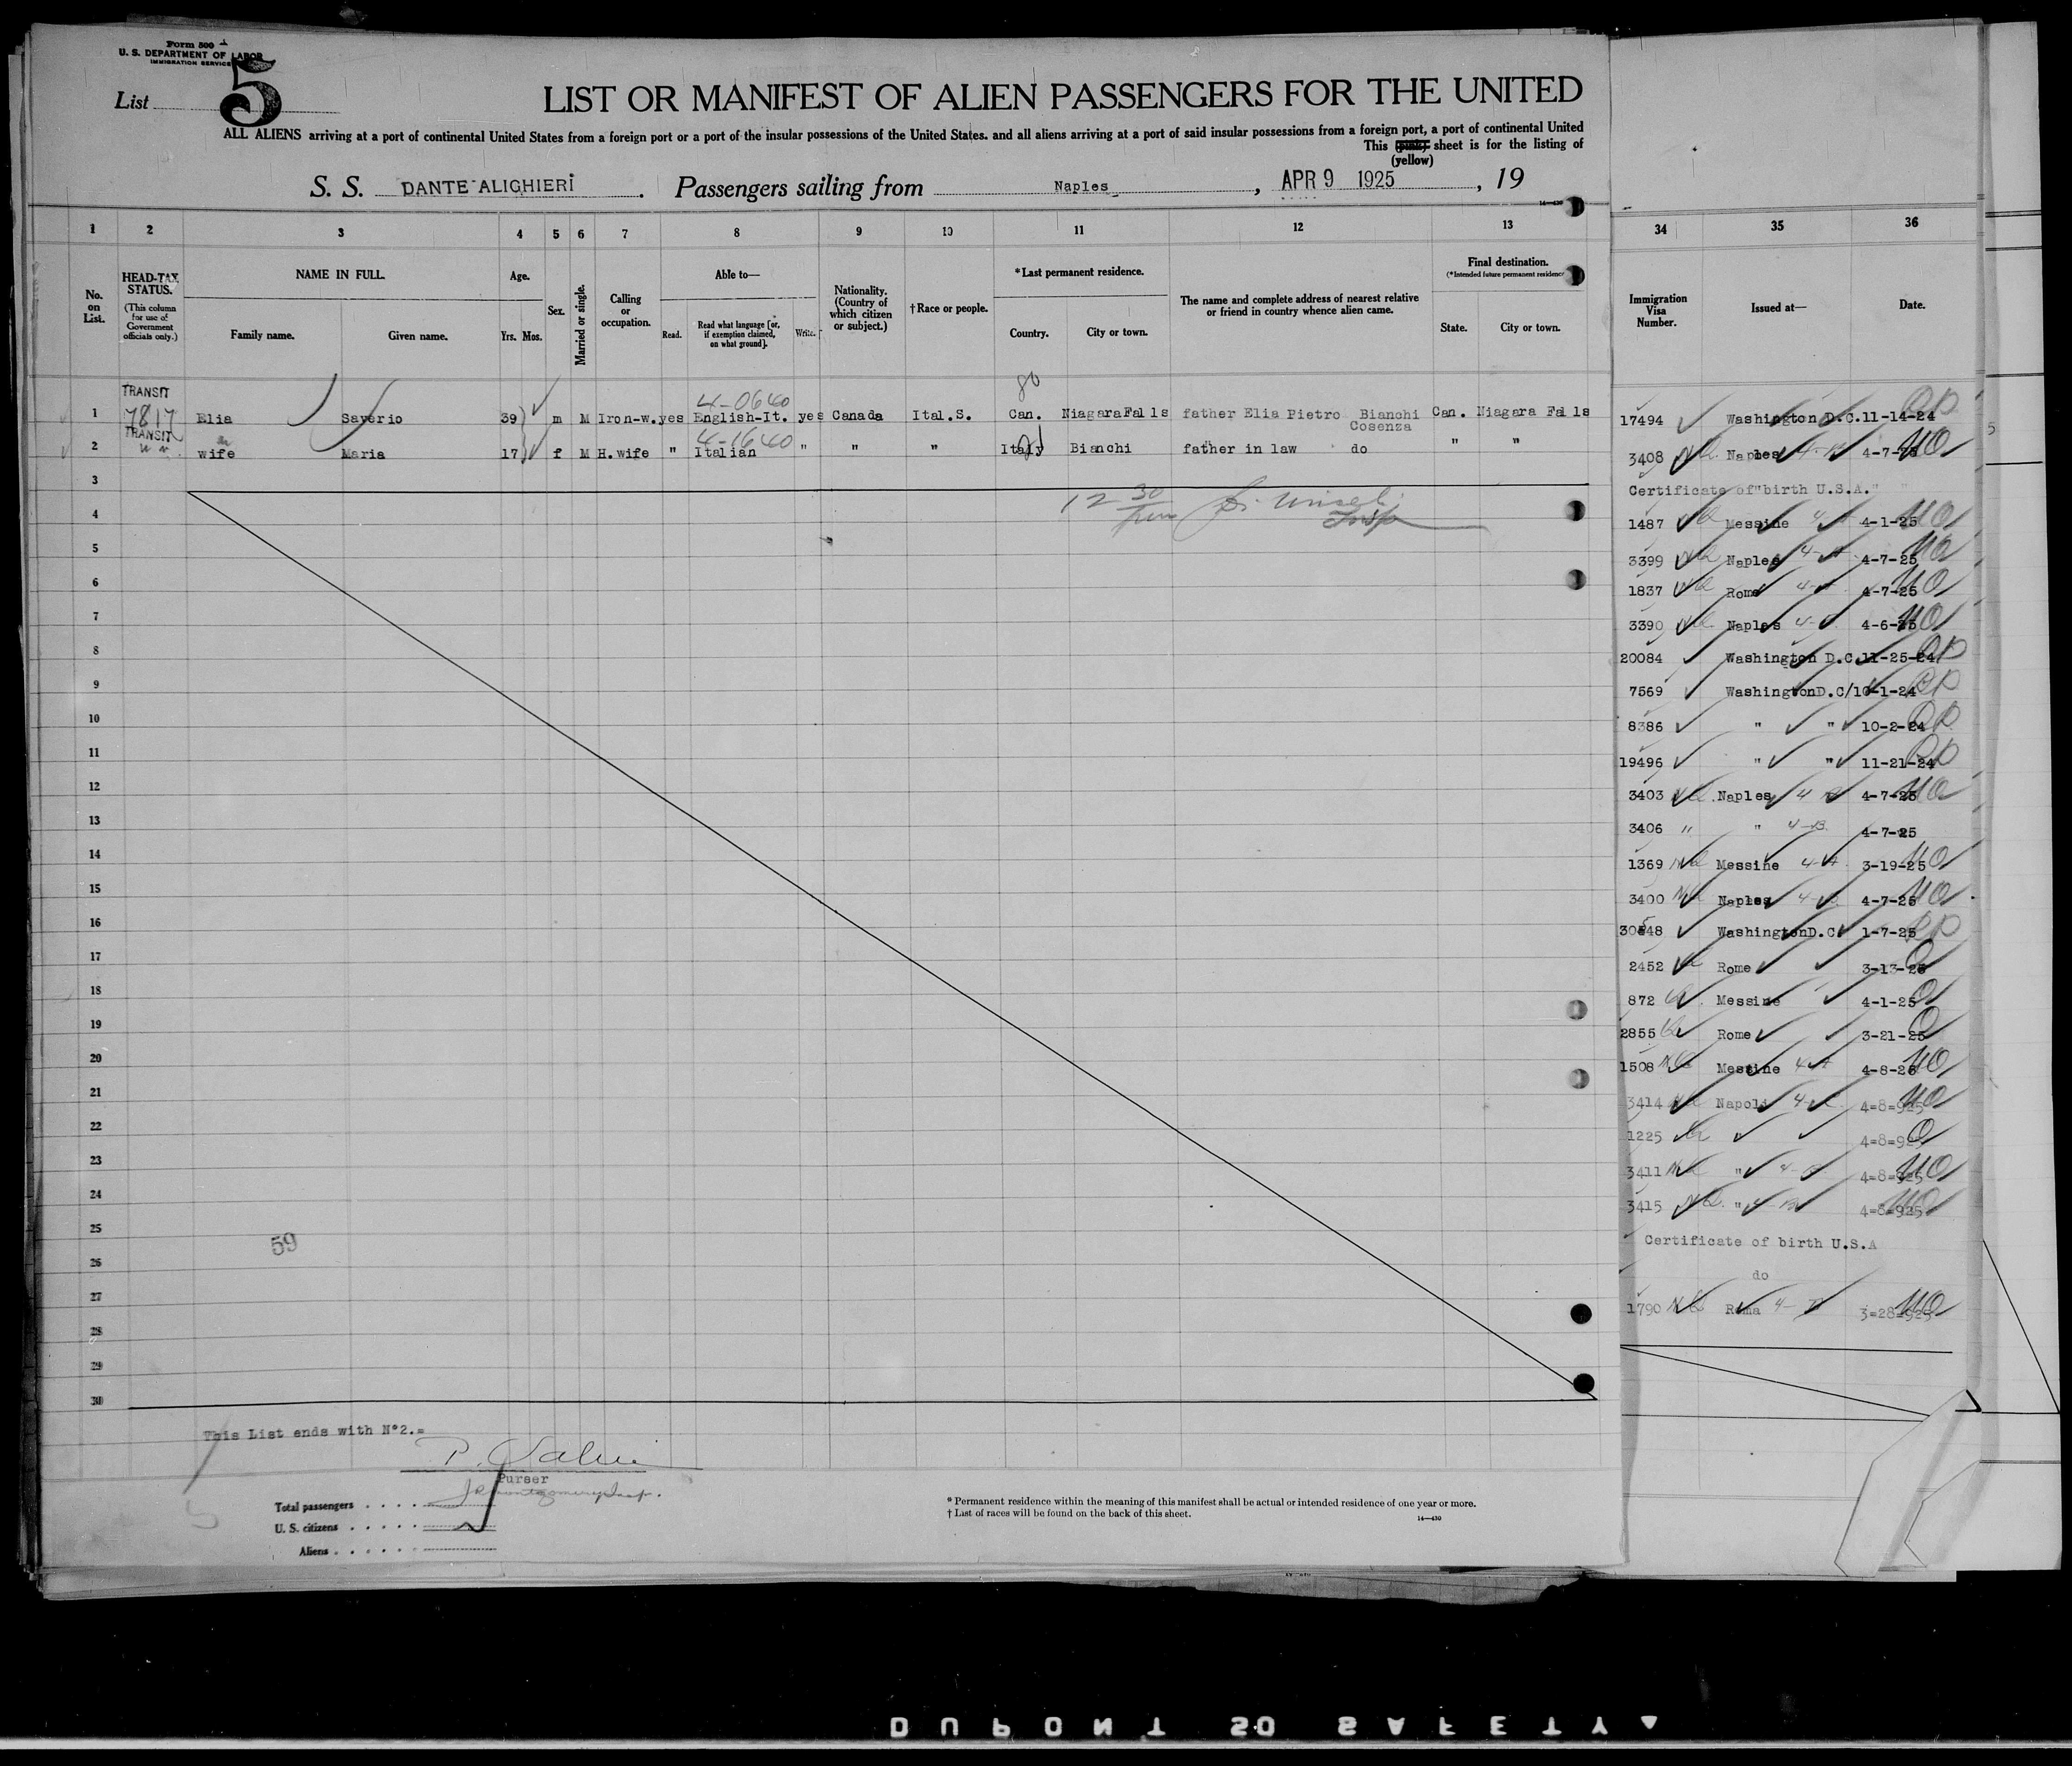 Form 500
U. S. DEPARTMENT OF LABOR
IMMIGRATION SERVICE
List 5
LIST OR MANIFEST OF ALIEN PASSENGERS FOR THE UNITED
ALL ALIENS arriving at a port of continental United States from a foreign port or a port of the insular possessions of the United States. and all aliens arriving at a port of said insular possessions from a foreign port, a port of continental United
This (pink) sheet is for the listing of
(yellow)
S. S. DANTE ALIGHIERI . Passengers sailing from Naples , APR 9 1925 , 19
14—430
1 2 3 4 5 6 7 8 9 10 11 12 13
No. on List.
HEAD-TAX STATUS.
(This column for use of Government officials only.)
NAME IN FULL.
Family name. Given name.
Age.
Yrs. Mos.
Sex.
Married or single.
Calling or occupation.
Able to—
Read. Read what language [or, if exemption claimed, on what ground]. Write.
Nationality. (Country of which citizen or subject.)
† Race or people.
* Last permanent residence.
Country. City or town.
The name and complete address of nearest relative or friend in country whence alien came.
Final destination.
(*Intended future permanent residence
State. City or town.
TRANSIT 4-0640 80
1 7817 Elia Saverio 39 m M Iron-w. yes English-It. yes Canada Ital.S. Can. Niagara Falls father Elia Pietro Bianchi Can. Niagara Falls
Cosenza
TRANSIT 4-1640
2 wife Maria 17 f M H.wife " Italian " " " Italy Bianchi father in law do " "
3
12 30 Insp
4
5
6
7
8
9
10
11
12
13
14
15
16
17
18
19
20
21
22
23
24
25
59
26
27
28
29
30
This List ends with N°2.=
Purser
J R Montgomery Insp.
Total passengers . . . .
U. S. citizens . . . . .
Aliens . . . . . .
* Permanent residence within the meaning of this manifest shall be actual or intended residence of one year or more.
† List of races will be found on the back of this sheet.
14—430
34 35 36
Immigration Visa Number.
Issued at—
Date.
17494 Washington D.C. 11-14-24
3408 Naples 4-7-25
Certificate of birth U.S.A. "
1487 Messine 4-1-25
3399 Naples 4-7-25
1837 Rome 4-7-25
3390 Naples 4-6-25
20084 Washington D.C. 11-25-24
7569 Washington D.C/ 10-1-24
8386 " " 10-2-24
19496 " " 11-21-24
3403 Naples 4-7-25
3406 " " 4-B. 4-7-25
1369 Messine 3-19-25
3400 Naples 4-7-25
30548 Washington D.C. 1-7-25
2452 Rome 3-13-25
872 Messine 4-1-25
2855 Rome 3-21-25
1508 Messine 4-8-25
3414 Napoli 4=8=925
1225 " 4=8=925
3411 " 4=8=925
3415 " 4=8=925
Certificate of birth U.S.A
do
1790 Roma 3=28=925
5
DUPONT SO SAFETY